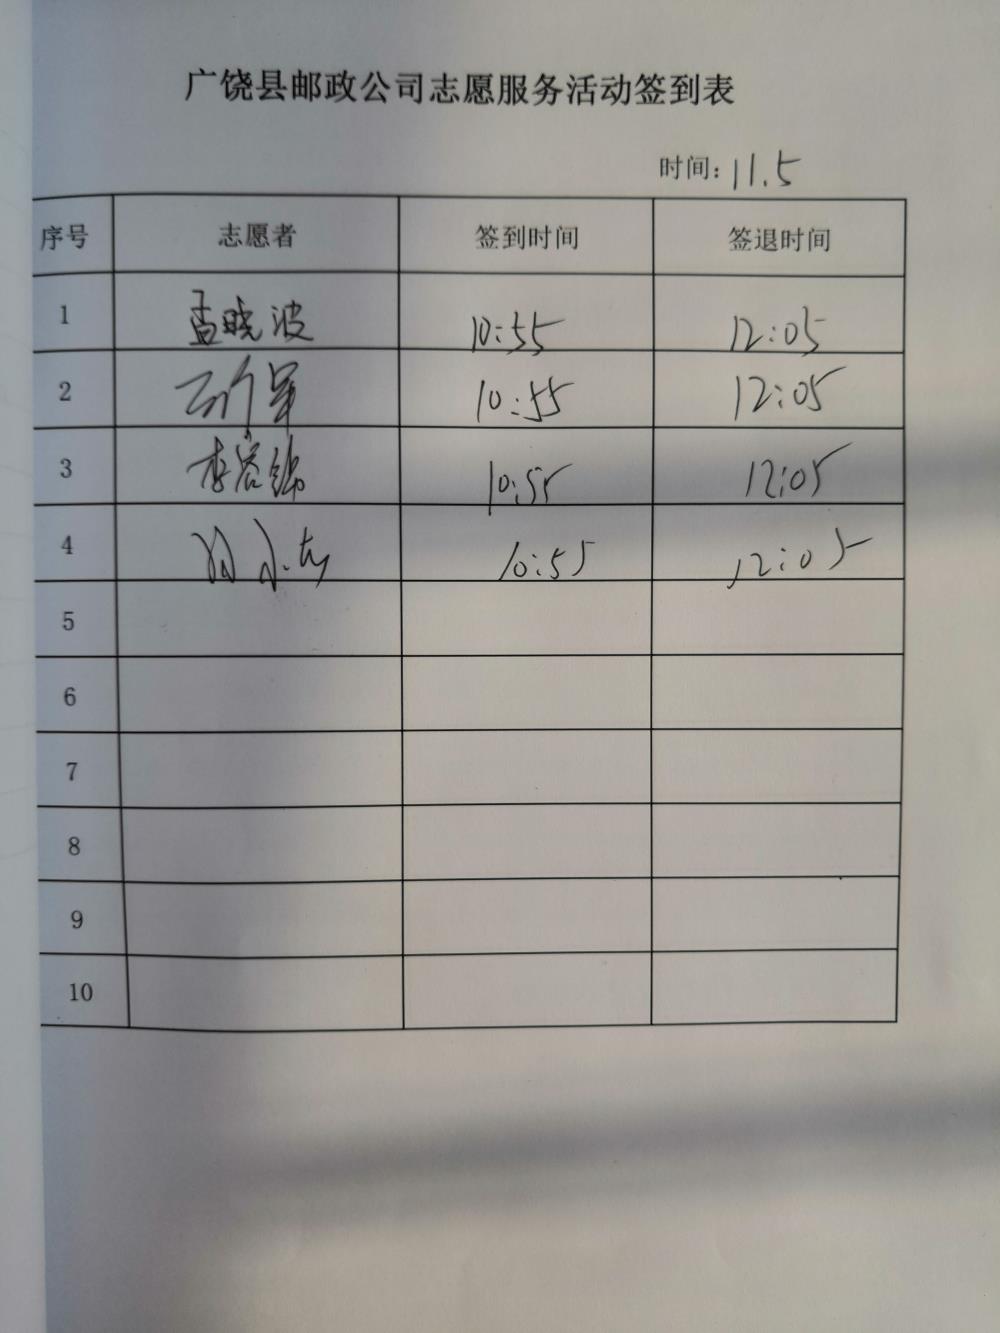 广饶县邮政公司志愿服务活动签到表
时间: 11.5
序号 志愿者 签到时间 签退时间
1 孟晓波 10:55 12:05
2 10:55 12:05
3 李 10:55 12:05
4 10:55 12:05
5
6
7
8
9
10